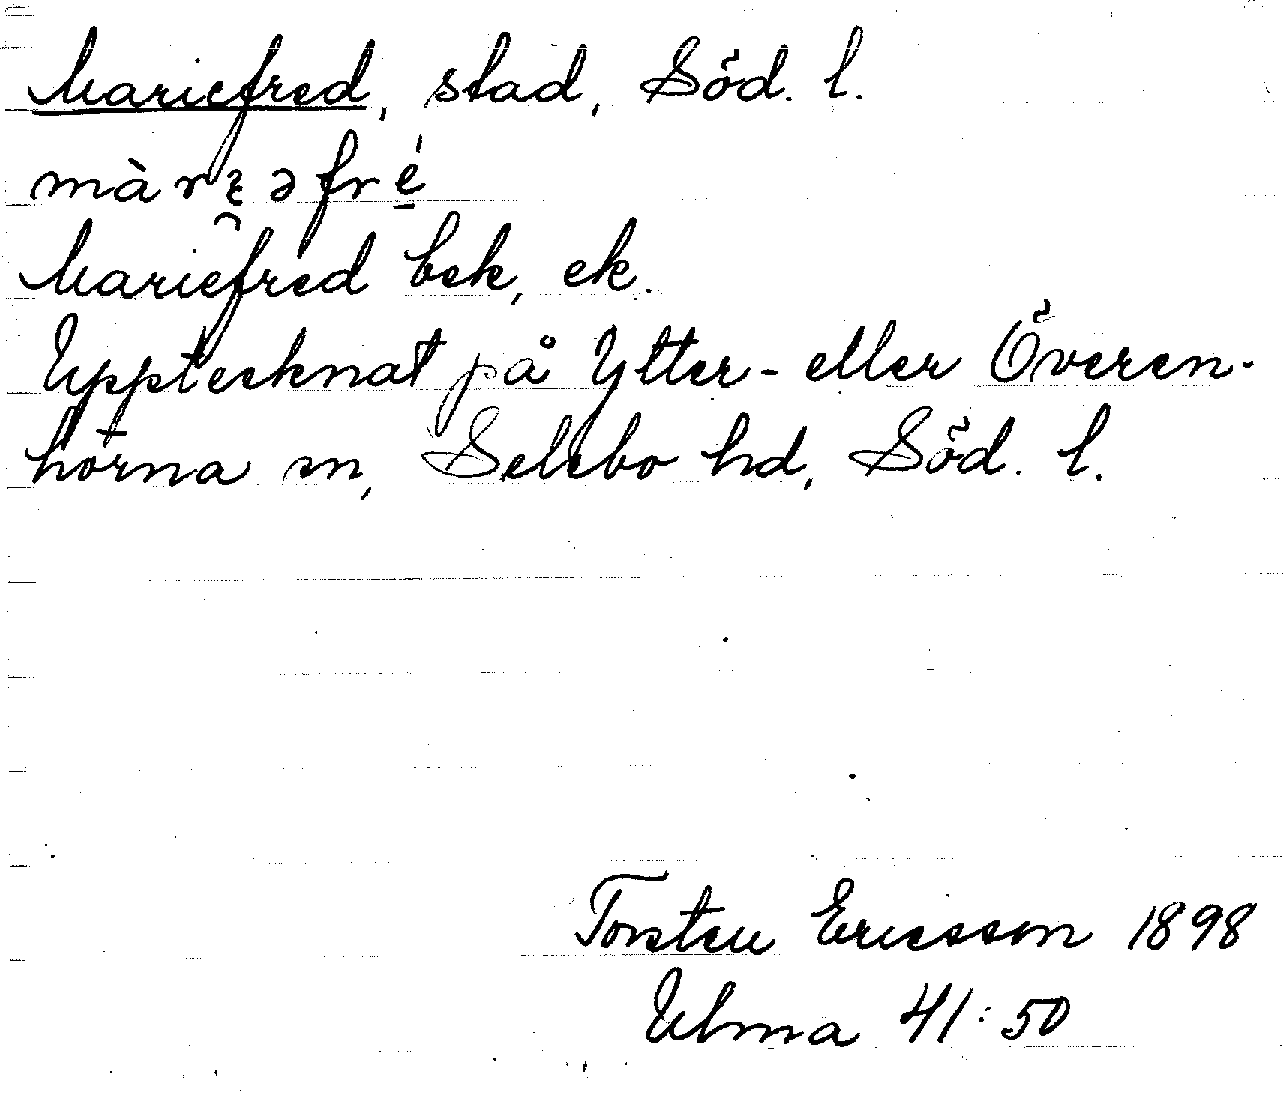 Mariefred, stad, Söd. l.
Mariefred bek, ek.
Upptecknat på Ytter- eller Överen-
hörna sn, Selebo hd, Söd. l.
Torsten Ericsson 1898
Ulma 41:50